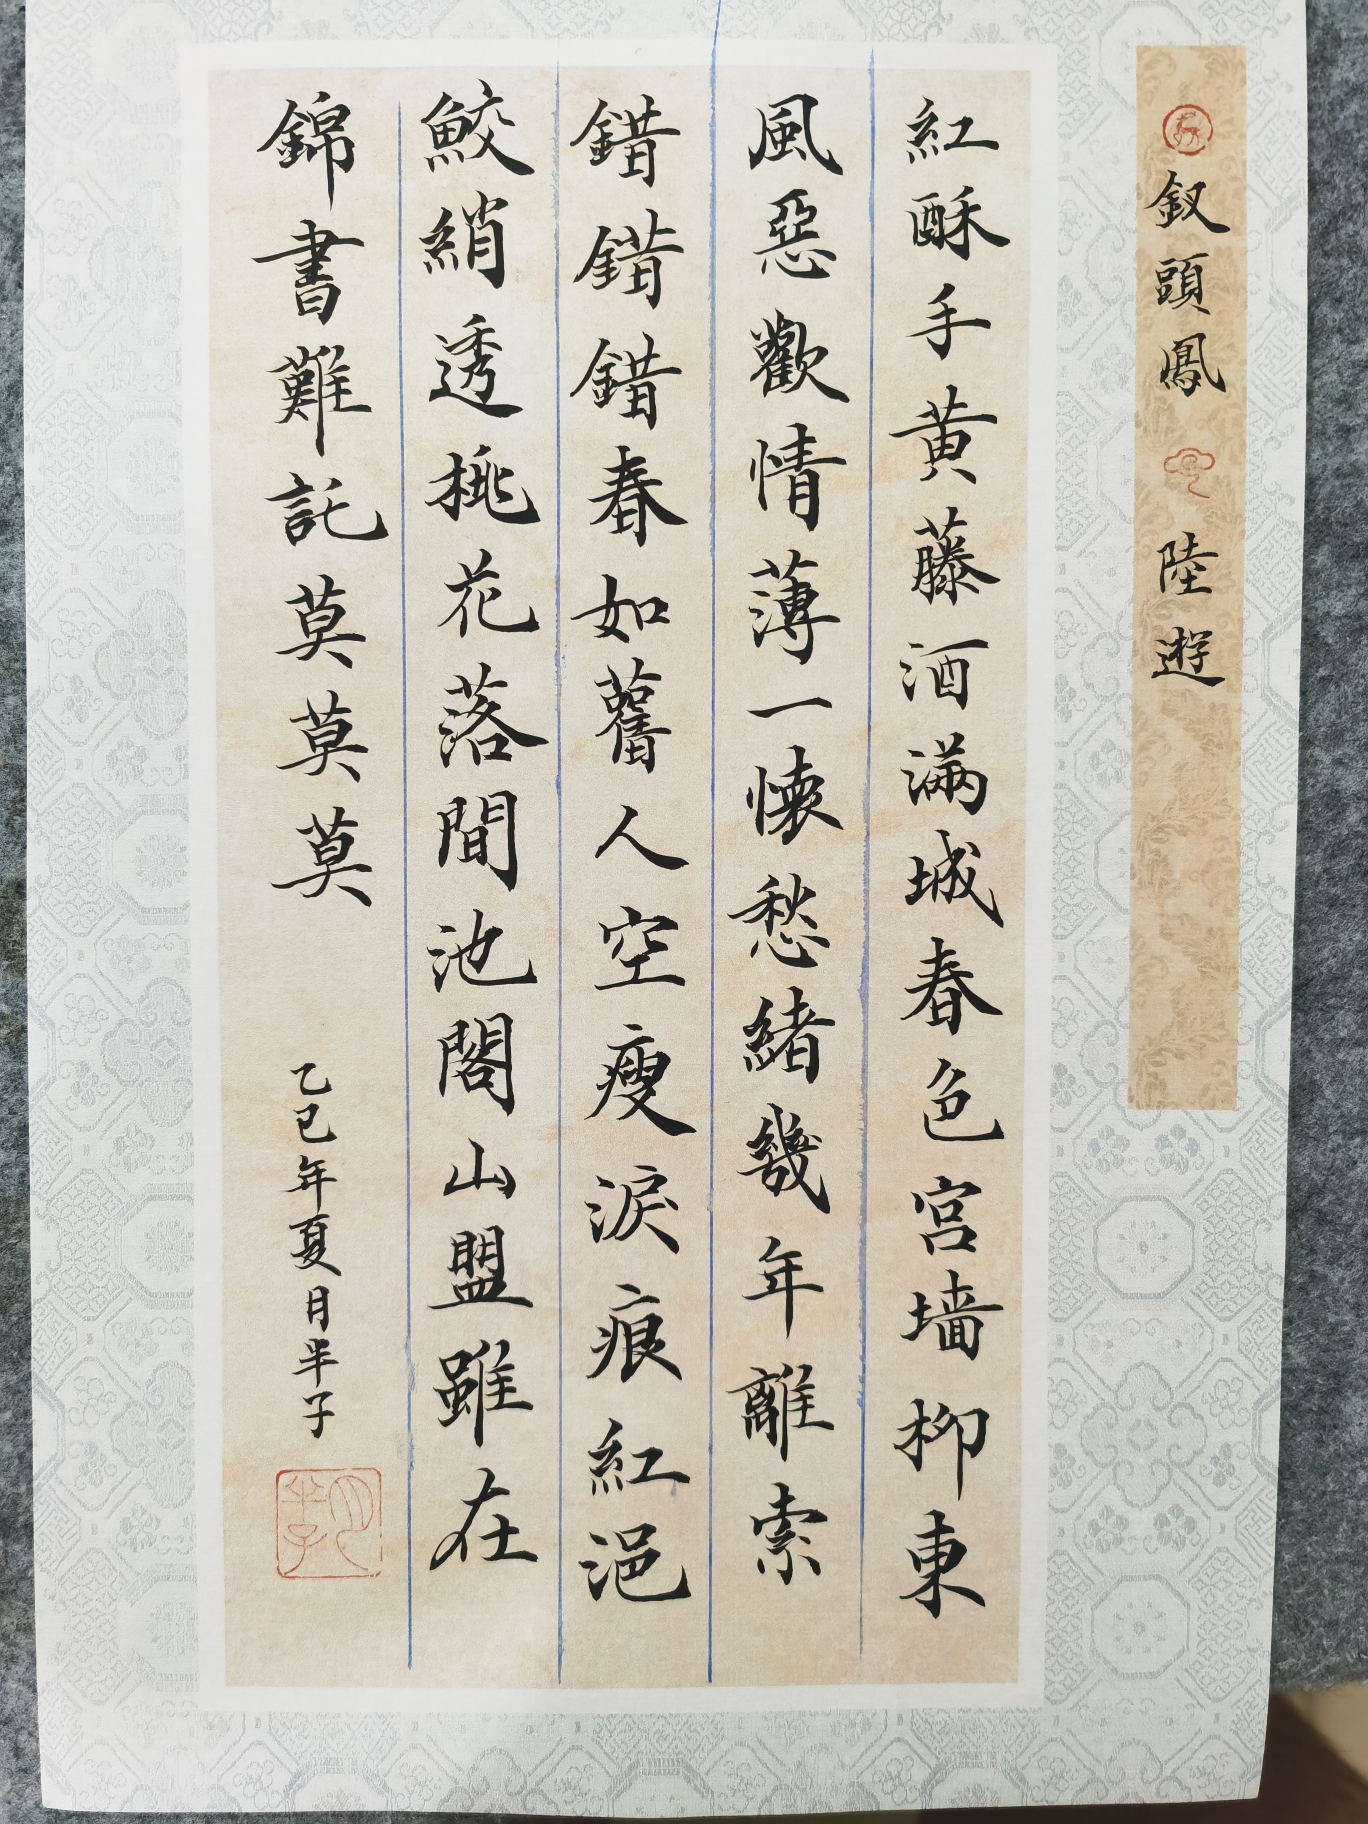 釵頭鳳 陸遊
紅酥手黄藤酒滿城春色宮墻柳東
風惡歡情薄一懷愁緒幾年離索
錯錯錯春如舊人空瘦淚痕紅浥
鮫綃透桃花落閒池閣山盟雖在
錦書難託莫莫莫
乙巳年夏月半子